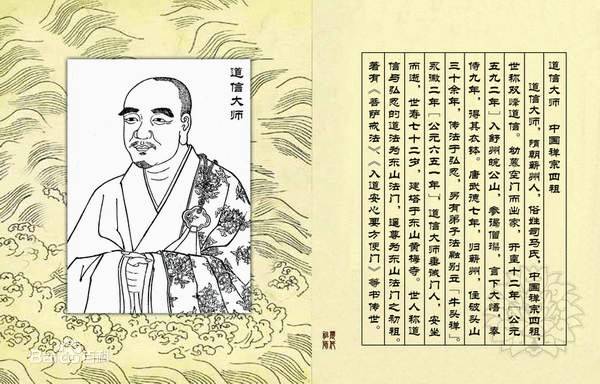 道信大师
道信大师　中国禅宗四祖
道信大师，隋朝蕲州人，俗姓司马氏，中国禅宗四祖，
世称双峰道信。幼慕空门而出家，开皇十二年［公元
五九二年］入舒州皖公山，参谒僧璨，言下大悟，奉
侍九年，得其衣钵。唐武德七年，归蕲州，住破头山
三十余年，传法于弘忍，另有弟子法融别立「牛头禅」。
永徽二年［公元六五一年］，道信大师垂诫门人，安坐
而逝，世寿七十二岁，建塔于东山黄梅寺。世人称道
信与弘忍的道法为东山法门，遥尊为东山法门之初祖。
著有《菩萨戒法》《入道安心要方便门》等书传世。
Baidu百科